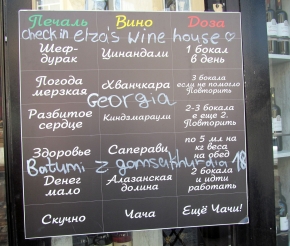 Печаль Вино Доза
check in elza's wine house
Шеф- Цинандали 1 бокал
дурак в день
Погода Хванчкара 3 бокала
мерзкая если не помогло
Повторить
Georgia
Разбитое Киндзмараули 2-3 бокала
сердце е еще 2.
Повторить
Здоровье Саперави по 5 мл на
кг веса
на обед
Batumi z gamsakhurdia 18
Денег Алазанская 2 бокала
мало долина и идти
работать
Скучно Чача Ещё Чачи!